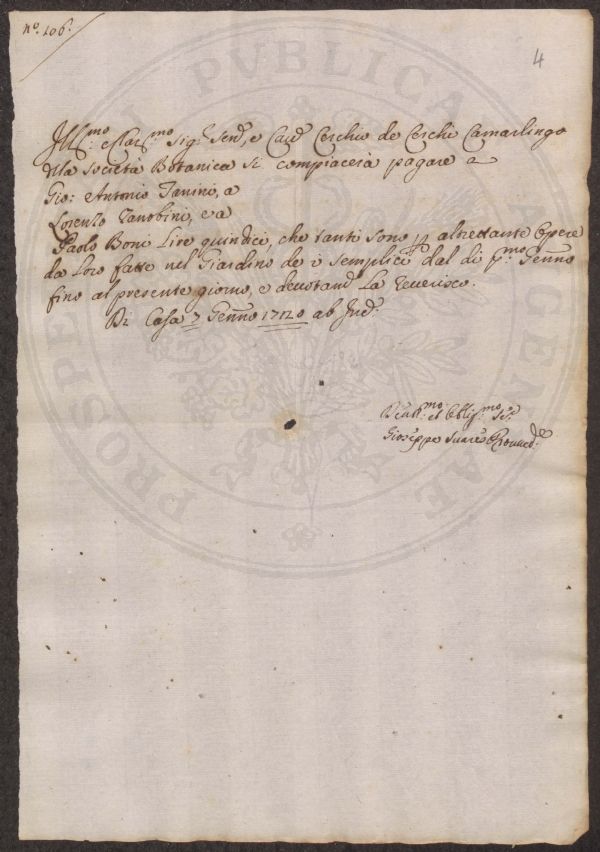 n.º 106.
4
Ill.mo e Clar.mo Sig.r Sen.re, e Cav.e Cerchio de Cerchi Camarlingo
della Società Botanica si compiacerà pagare a
Gio: Antonio Tanini, a
Lorenzo Zanobini, e a
Paolo Boni Lire quindici, che tanti sono p altrettante Opere
da Loro fatte nel Giardino de i semplici dal di p.mo Genn.o
fino al presente giorno, e devotam.e La reverisco.
Di Casa 7 Genn.o
Giuseppe Suares Provved.re
PROSPERITATI PVBLICAE AVGENDAE